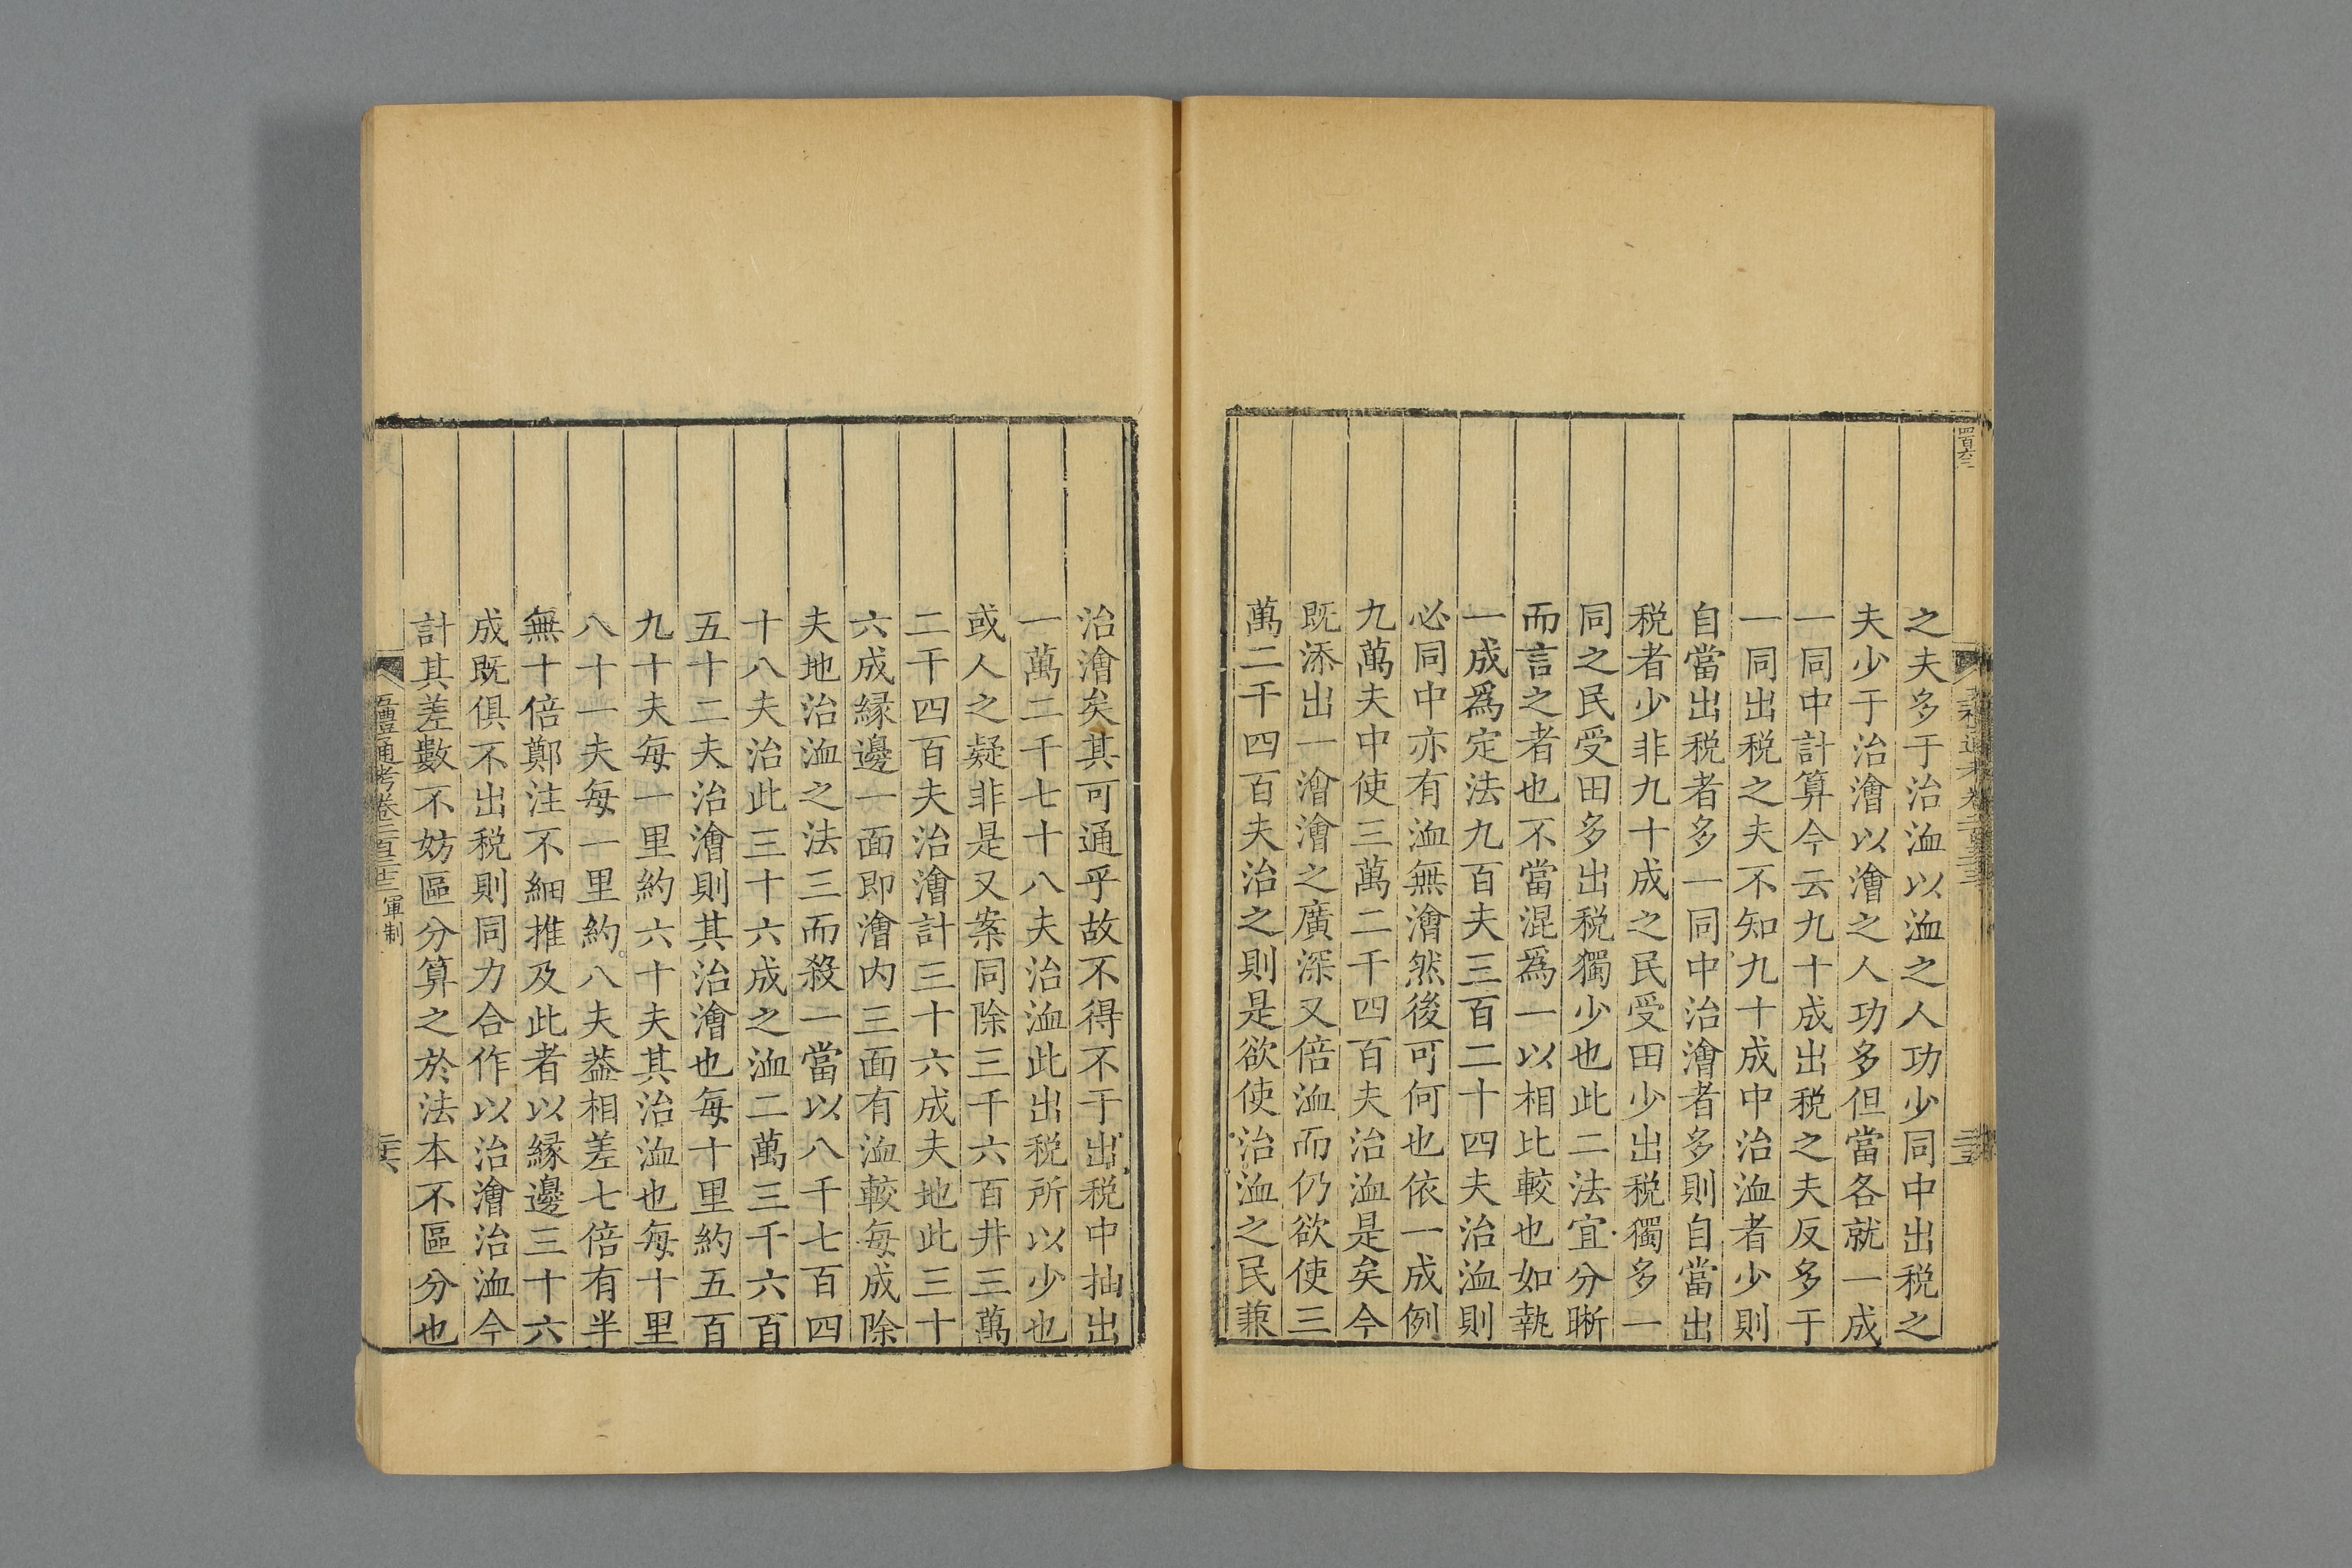 四百六二
之夫多于治洫以洫之人功少同中出税之
夫少于治澮以澮之人功多但當各就一成
一同中計算今云九十成出税之夫反多于
一同出税之夫不知九十成中治洫者少則
自當出税者多一同中治澮者多則自當出
税者少非九十成之民受田少出税獨多一
同之民受田多出税獨少也此二法宜分晰
而言之者也不當混爲一以相比較也如執
一成爲定法九百夫三百二十四夫治洫則
必同中亦有洫無澮然後可何也依一成例
九萬夫中使三萬二千四百夫治洫是矣今
既添出一澮澮之廣深又倍洫而仍欲使三
萬二千四百夫治之則是欲使治洫之民兼
治澮矣其可通乎故不得不于出税中抽出
一萬二千七十八夫治洫此出税所以少也
或人之疑非是又案同除三千六百井三萬
二千四百夫治澮計三十六成夫地此三十
六成縁邊一面即澮内三面有洫較每成除
夫地治洫之法三而殺一當以八千七百四
十八夫治此三十六成之洫二萬三千六百
五十二夫治澮則其治澮也每十里約五百
九十夫每一里約六十夫其治洫也每十里
八十一夫每一里約八夫葢相差七倍有半
無十倍鄭注不細推及此者以縁邊三十六
成既俱不出税則同力合作以治澮治洫今
計其差數不妨區分算之於法本不區分也
五禮通考卷二百三十三 軍制